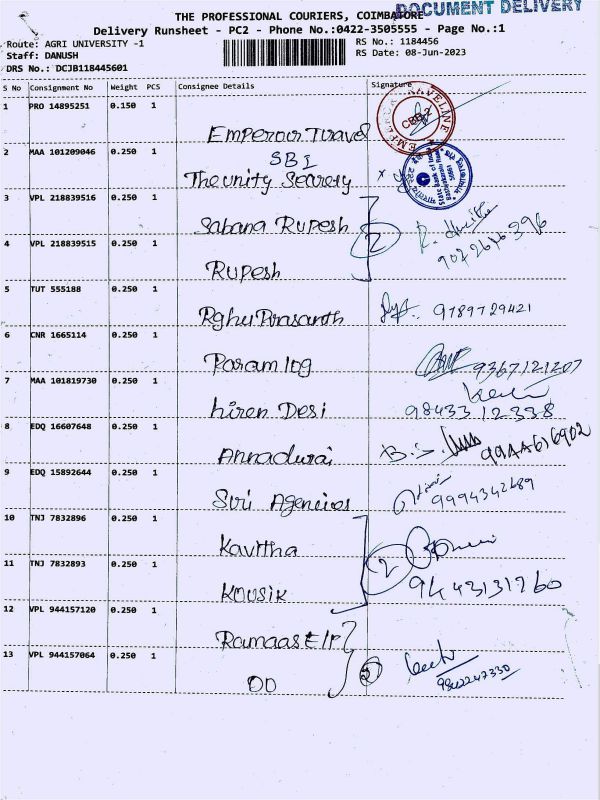 DOCUMENT DELIVERY
THE PROFESSIONAL COURIERS, COIMBATORE
Delivery Runsheet - PC2 - Phone No.:0422-3505555 - Page No.:1
Route: AGRI UNIVERSITY -1
RS No.: 1184456
Staff: DANUSH
RS Date: 08-Jun-2023
DRS No.: DCJB118445601
S No Consignment No Weight PCS Consignee Details Signature
1 PRO 14895251 0.150 1 Emperour Travel
CBE-2
2 MAA 101209046 0.250 1 SBI
The unity Secrety
3 VPL 218839516 0.250 1 Sabana Rupesh
2
4 VPL 218839515 0.250 1 Rupesh
5 TUT 555188 0.250 1 Rghu Prasanth 9789729421
6 CNR 1665114 0.250 1 Param log 9367121207
7 MAA 101819730 0.250 1 hiren Desi 98433 12338
8 EDQ 16607648 0.250 1 Annadurai 9944616902
9 EDQ 15892644 0.250 1 Siri Agencies 9994342489
10 TNJ 7832896 0.250 1 Kavitha
2
11 TNJ 7832893 0.250 1 Kousik 9443131760
12 VPL 944157120 0.250 1 Ramaas E/P
13 VPL 944157064 0.250 1 DD 9842247330